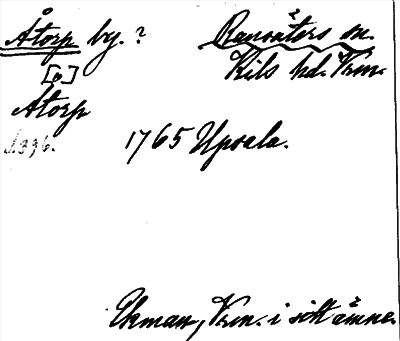 Åtorp by. ? Ransäters sn.
[o] Kils hd. Vrm.
Åtorp
s. 396.
1765 Upsala.
Ekman, Vrm. i sitt ämne.